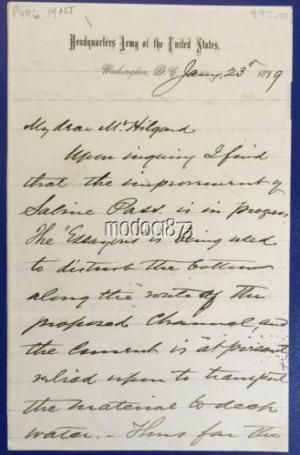 P446 14 NJ
$95.00
Headquarters Army of the United States.
Washington, D.C. Jany, 23d 1879
My dear Mr Hilgard
Upon inquiry I find
that the improvement of
Sabine Pass is in progress
The "Essayons" is being used
to disturb the bottom
along the route of the
proposed Channel, and
the Current is at present
relied upon to transport
the material to deep
water. – Thus far the
modoci873